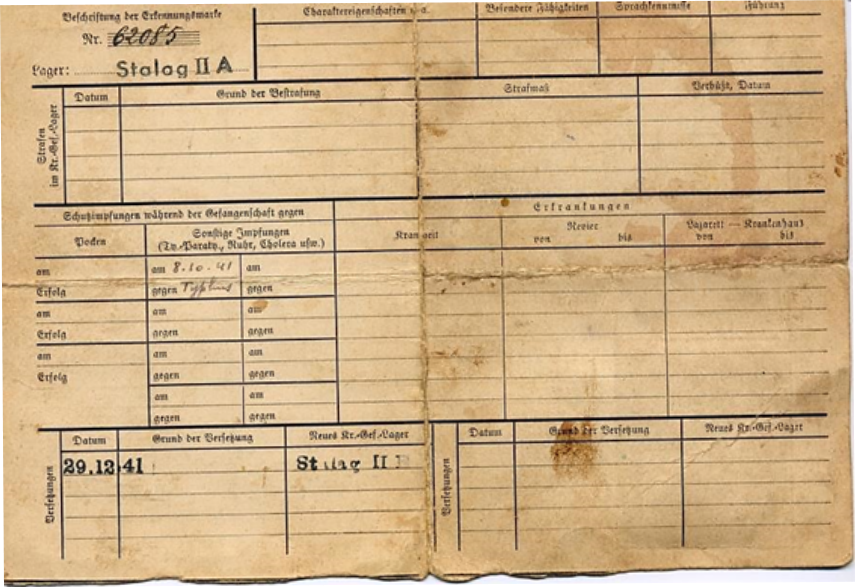 Beschriftung der Erkennungsmarke
Nr. 62085
Lager: Stalag II A
Charaktereigenschaften
Besondere Fähigkeiten
Sprachkenntnisse
Führung
Strafen
im Kr.-Gef.-Lager
Datum
Grund der Bestrafung
Strafmaß
Verbüßt, Datum
Schutzimpfungen während der Gefangenschaft gegen
Erkrankungen
Pocken
Sonstige Impfungen
(Ty.-Paraty., Ruhr, Cholera usw.)
Krankheit
Revier
von bis
Lazarett — Krankenhaus
von bis
am
am 8.10.41
am
Erfolg
gegen Typhus
gegen
am
am
am
Erfolg
gegen
gegen
am
am
am
Erfolg
gegen
gegen
am
am
gegen
gegen
Versetzungen
Datum
Grund der Versetzung
Neues Kr.-Gef.-Lager
29.12.41
Stalag II
Versetzungen
Datum
Grund der Versetzung
Neues Kr.-Gef.-Lager